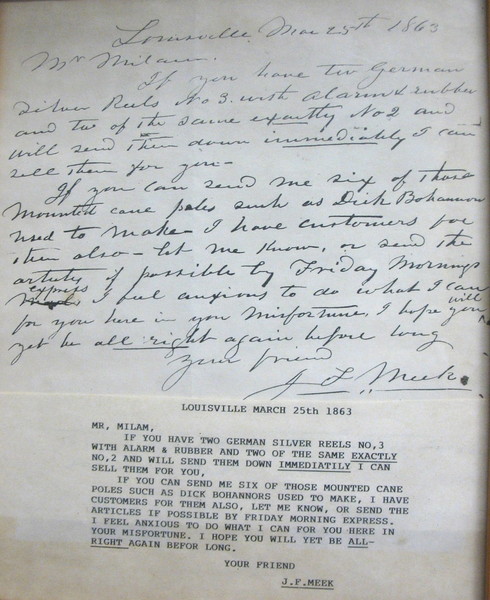 Louisville Mar 25th 1863
Mr Milam.
If you have two German
Silver Reels No 3. with Alarm & rubber
and two of the same exactly No 2 and
will send them down immediatily I can
sell them for you-
If you can send me six of those
Mounted cane poles such as Dick Bohannon
used to make I have customers for
them also - let me know, or send the
articles if possible by Friday Mornings
express
I feel anxious to do what I can
for you here in your Misfortune, I hope you will
yet be all right again before long
Your friend
J F Meek.
LOUISVILLE MARCH 25th 1863
MR, MILAM,
IF YOU HAVE TWO GERMAN SILVER REELS NO,3
WITH ALARM & RUBBER AND TWO OF THE SAME EXACTLY
NO,2 AND WILL SEND THEM DOWN IMMEDIATILY I CAN
SELL THEM FOR YOU,
IF YOU CAN SEND ME SIX OF THOSE MOUNTED CANE
POLES SUCH AS DICK BOHANNORS USED TO MAKE, I HAVE
CUSTOMERS FOR THEM ALSO, LET ME KNOW, OR SEND THE
ARTICLES IF POSSIBLE BY FRIDAY MORNING EXPRESS.
I FEEL ANXIOUS TO DO WHAT I CAN FOR YOU HERE IN
YOUR MISFORTUNE. I HOPE YOU WILL YET BE ALL-
RIGHT AGAIN BEFOR LONG.
YOUR FRIEND
J.F.MEEK